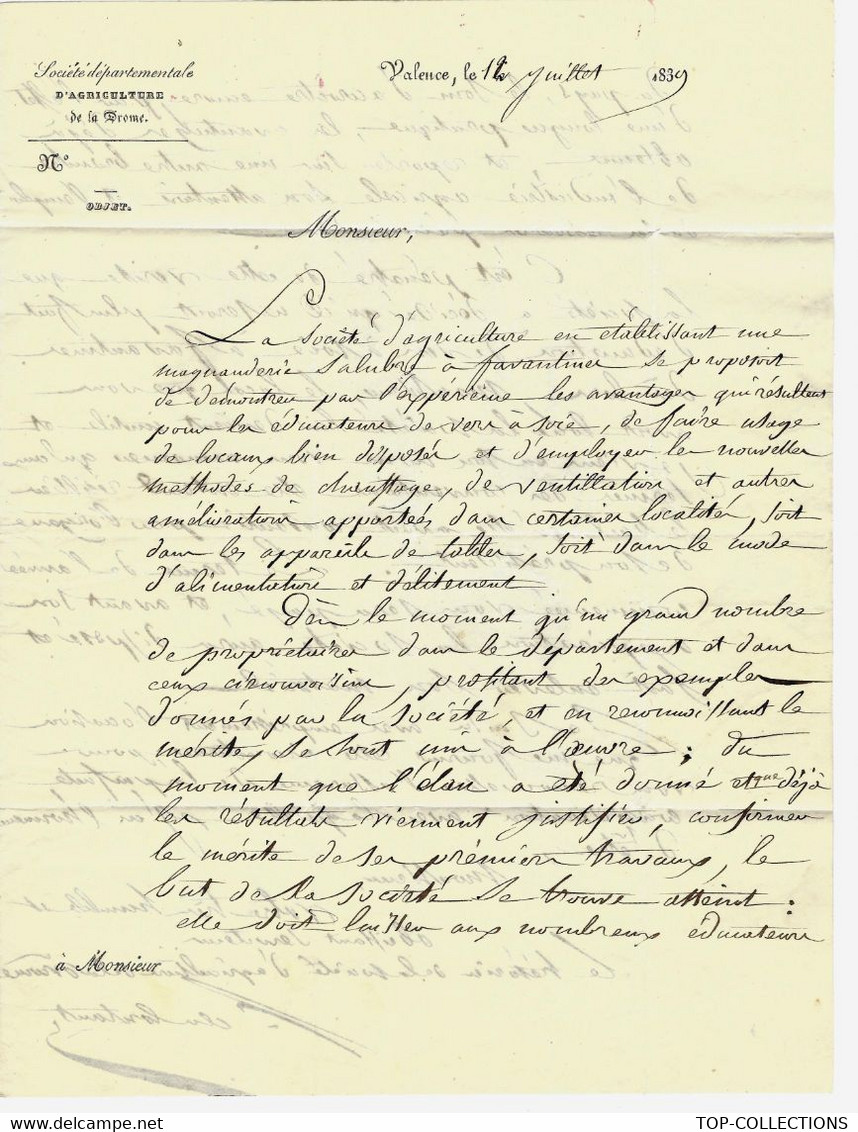 Société départementale
D'AGRICULTURE
de la Drome.
N°
OBJET.
Valence, le 12 Juillet 1839
Monsieur,
La société d'agriculture en établissant une
magnanderie salubre à favantines se proposoit
de démontrer par l'expérience les avantages qui résultent
pour les éducateurs de vers à soie, de faire usage
de locaux bien disposés et d'employer les nouvelles
méthodes de chauffage, de ventillation et autres
améliorations apportées dans certaines localités, soit
dans les appareils de tables, soit dans le mode
d'alimentation et délitement
Dès le moment qu'un grand nombre
de propriétaires dans le département et dans
ceux circonvoisins, profitant des exemples
donnés par la société, et en reconnoissant le
mérite, se sont mis à l'œuvre; du
moment que l'élan a été donné et que déjà
les résultats viennent justifier, confirmer
le mérite de ses prémiers travaux, le
but de la société se trouve atteint:
elle doit laisser aux nombreux éducateurs
à Monsieur
TOP-COLLECTIONS